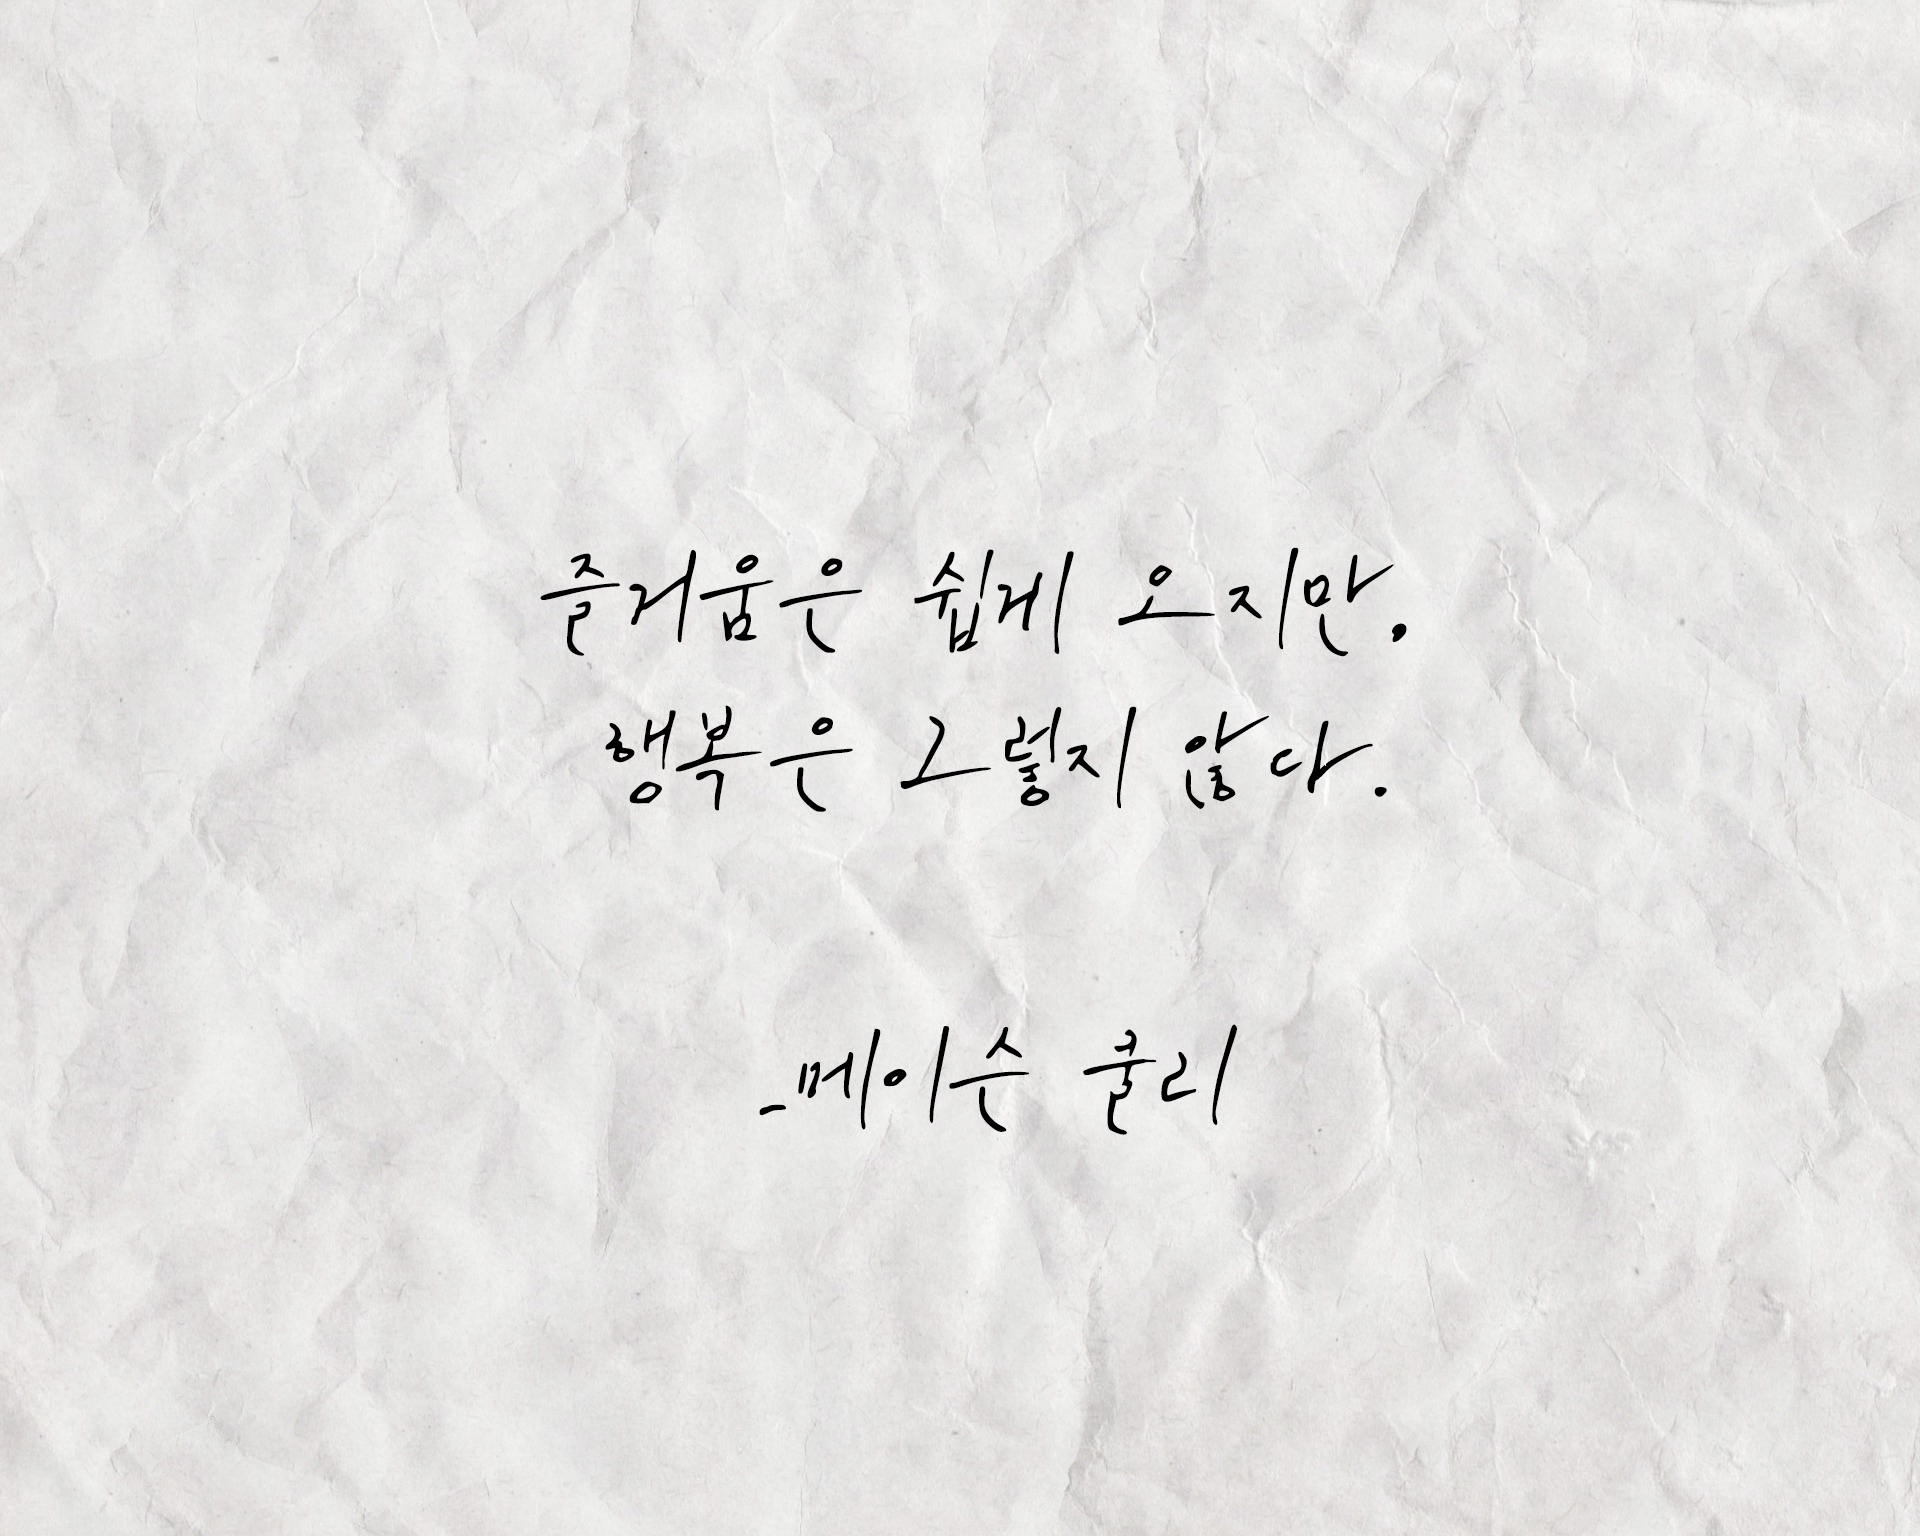 즐거움은 쉽게 오지만.
행복은 그렇지 않다.
_메이슨 쿨리